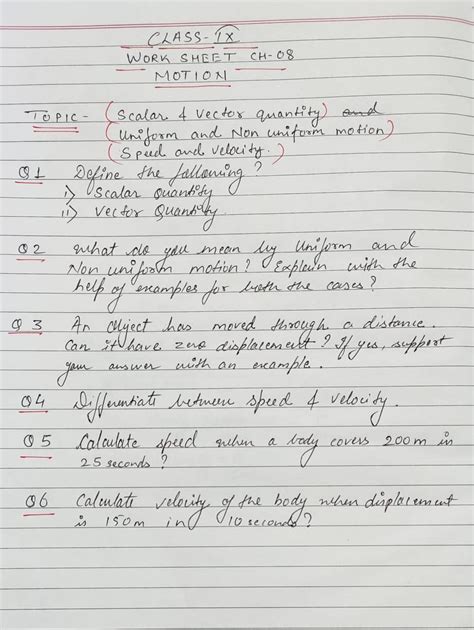 CLASS-IX
WORK SHEET CH-08
MOTION
TOPIC- (Scalar & vector quantity) and
(Uniform and Non uniform motion)
(Speed and velocity.)
Q1 Define the following?
i) Scalar Quantity
ii) Vector Quantity
Q2 What do you mean by Uniform and
Non uniform motion? Explain with the
help of examples for both the cases?
Q3 An object has moved through a distance.
Can it have zero displacement? If yes, support
your answer with an example.
Q4 Differentiate between speed & velocity.
Q5 Calculate speed when a body covers 200m in
25 seconds?
Q6 Calculate velocity of the body when displacement
is 150m in 10 seconds?